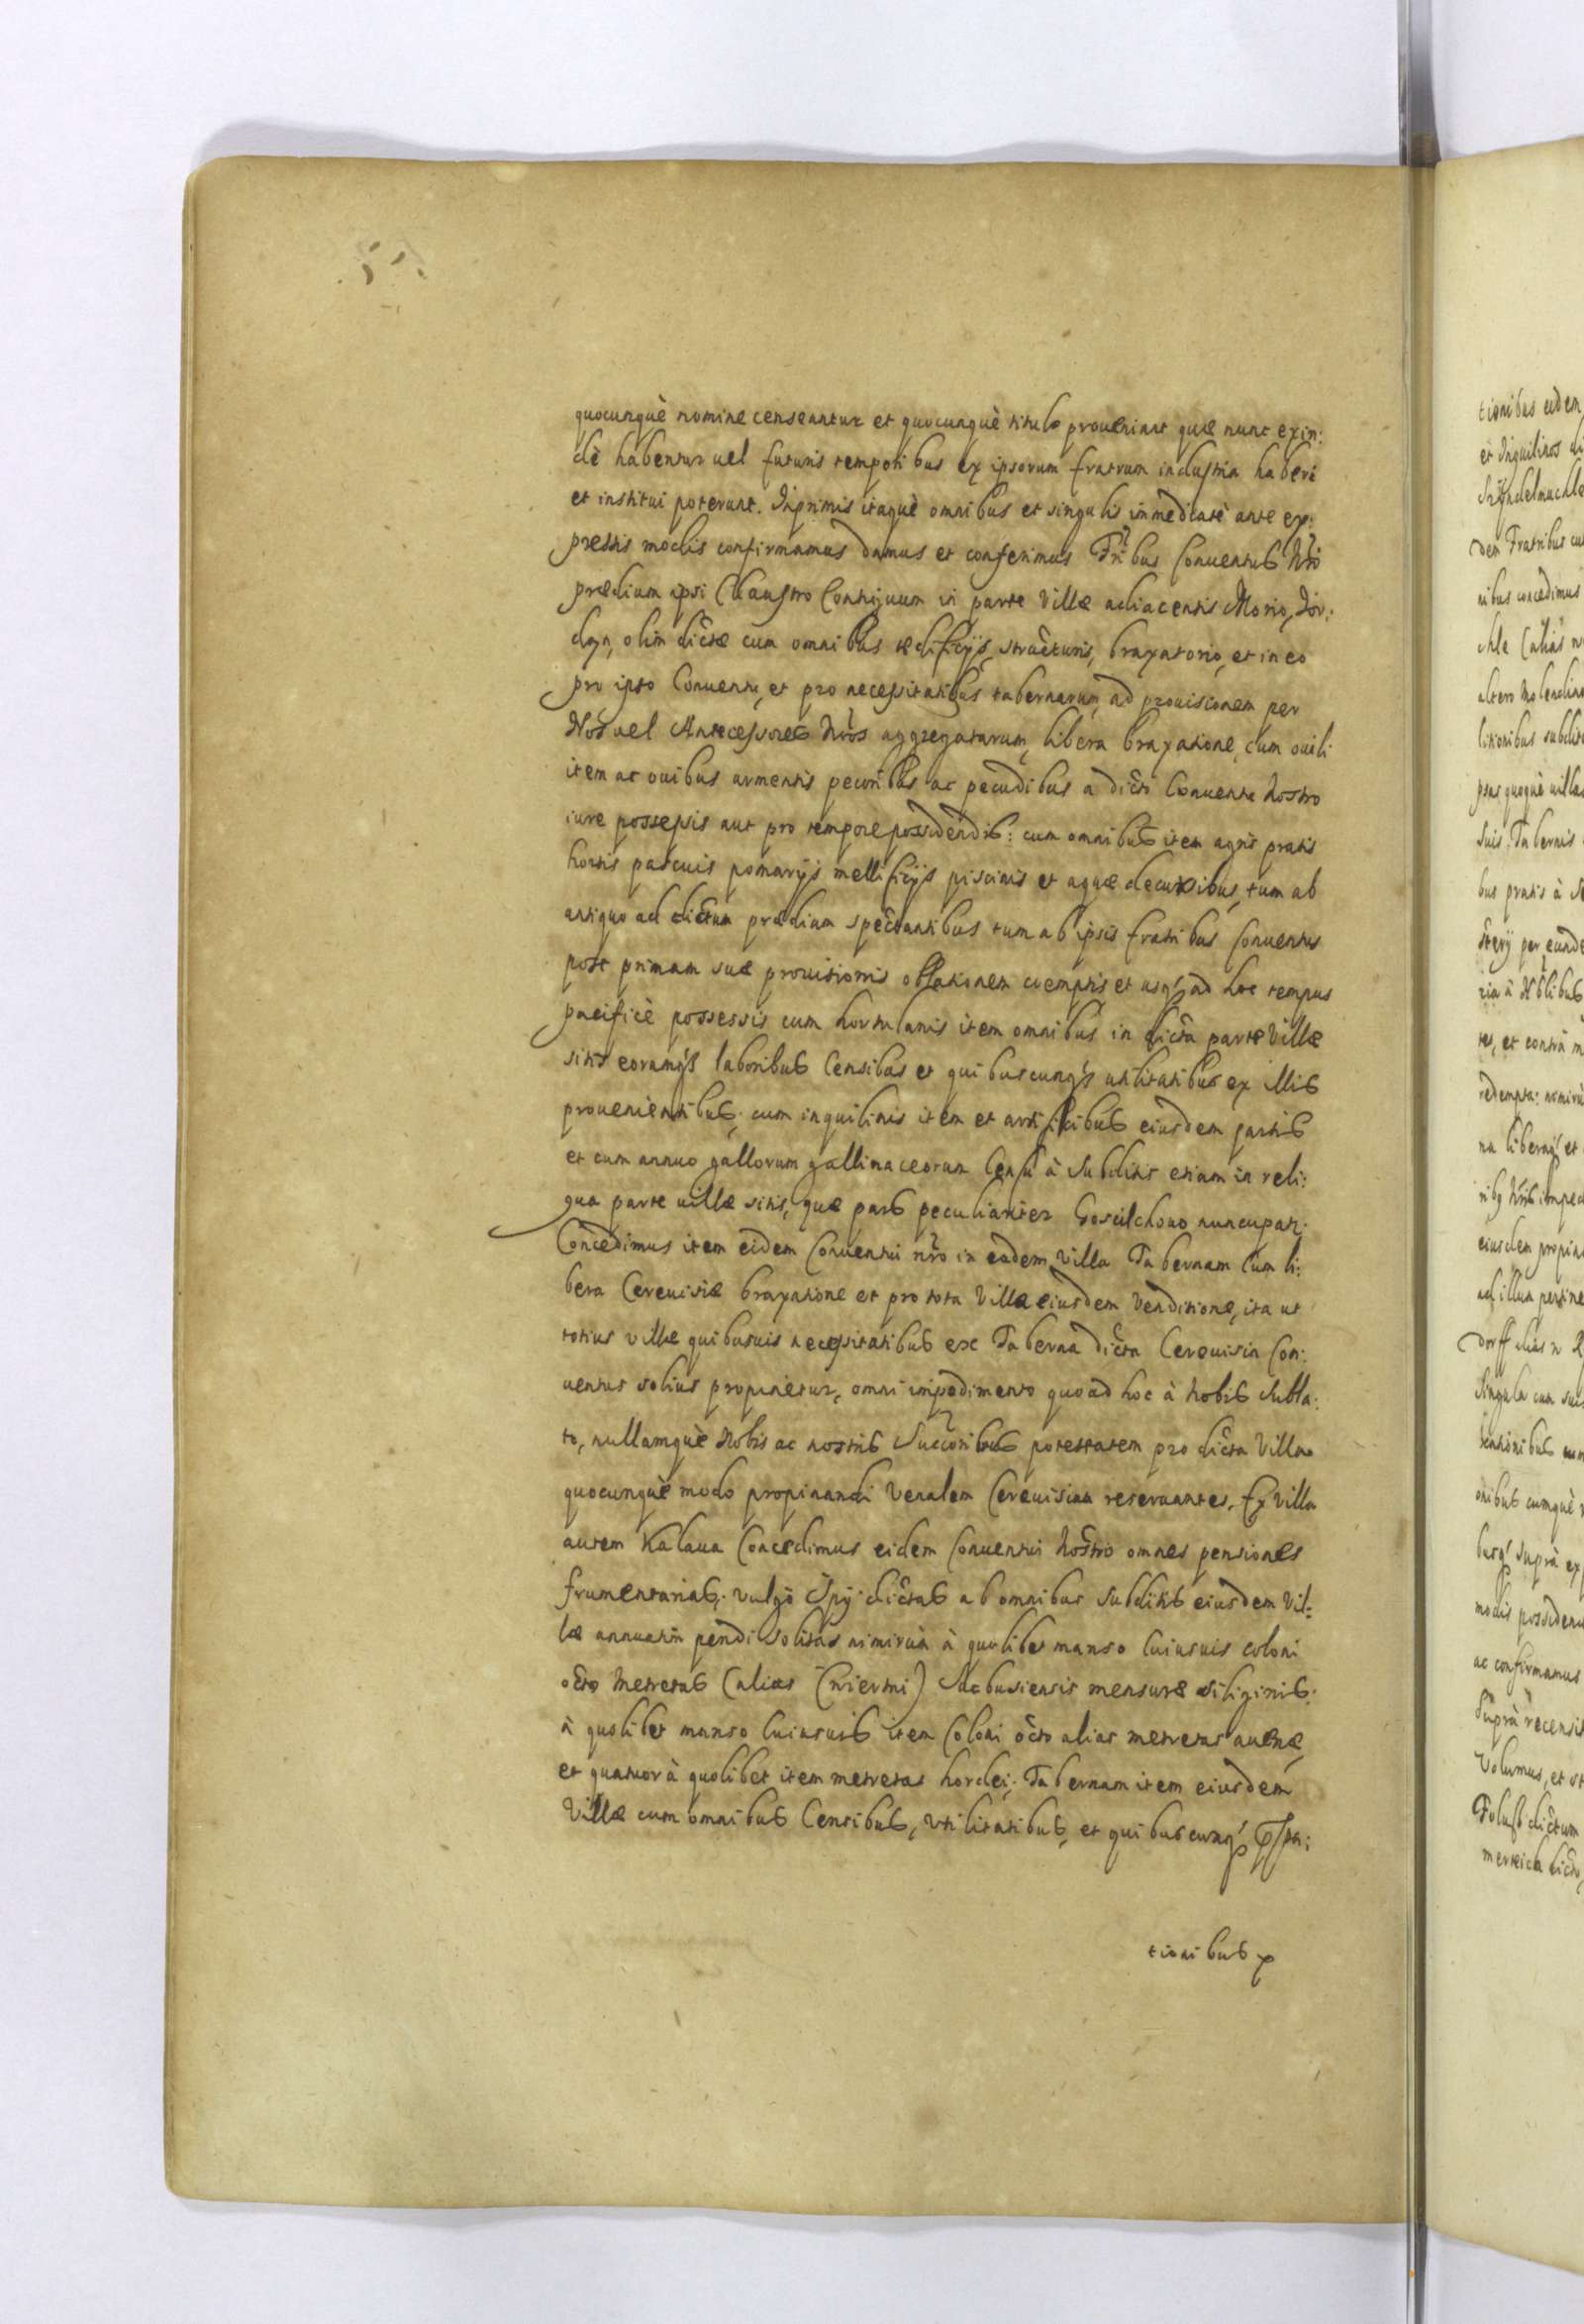 quocunquè nomine censeantur et quocunquè titulo proueniant quæ nunc exin:
dè habentur uel futuris temporibus ex ipsorum fratrum industria haberi
et institui poterunt. Inprimis itaquè omnibus et singulis immediatè ante ex:
pressis modis confirmamus damus et conferimus Frībus Conuentus Nrō
prædium ipsi Claustro Contiguum in parte Villæ adiacentis Morio,
olim dictæ cum omnibus ædificijs, structuris, braxatorio, et in eo
pro ipso Conuentu, et pro necessitatibus tabernarum, ad prouisionem per
Nos uel Antecessores Nrōs aggregatarum, libera braxatione, cum ouili
item ac ouibus armentis pecoribus ac pecudibus a dicto Conuentu Nostro
iure possessis aut pro tempore possidendis: cum omnibus item agris pratis
hortis pascuis pomarijs mellificijs piscinis et aquæ decursibus, tum ab
antiquo ad dictum prædium spectantibus tum ab ipsis fratribus Conuentus
post primam suæ prouisionis oblationem coemptis et usq ad hoc tempus
pacificè possessis cum hortulanis item omnibus in dicta parte Villæ
sitis eorumq laboribus Censibus et quibuscunq utilitatibus ex illis
prouenientibus; cum inquilinis item et artificibus eiusdem partis
et cum annuo gallorum gallinaceorum Censu à Subditis etiam in reli:
qua parte uillæ sitis, quæ pars peculiariter nuncupatr.
Concedimus item eidem Conuentui nrō in eadem Villa Tabernam Cum li:
bera Cereuisiæ braxatione et pro tota Villa eiusdem Venditione, ita ut
totius villæ quibusuis necessitatibus ex Taberna dicta Cereuisia Con:
uentus solius propinetur, omni impedimento quoad hoc à Nobis Subla:
to, nullamquè Nobis ac nostris Succoribus potestatem pro dicta Villa
quocunquè modo propinandi Venalem Cereuisiam reseruantes. Ex Villa
autem Kalaua Concedimus eidem Conuentui Nostro omnes pensiones
frumentarias, vulgò Spÿ dictas ab omnibus Subditis eiusdem Vil:
læ annuatim pendi solitas nimirùm à quolibet manso Cuiusuis coloni
octo Metretas (alias Cwiertni) siliginis:
à quolibet manso Cuiusuis item Coloni octo alias metretas auenæ,
et quatuor à quolibet item metretas hordei; Tabernam item eiusdem
Villæ cum omnibus Censibus, Vtilitatibus, et quibuscunq
tionibus